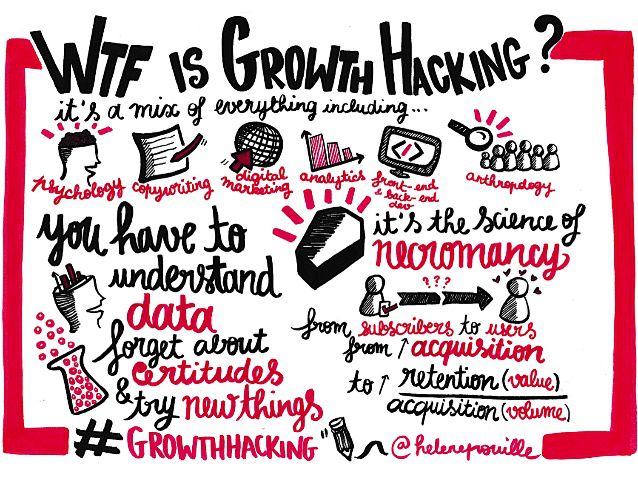 WTF IS GROWTH HACKING?
it's a mix of everything including...
psychology
copywriting
digital
marketing
analytics
front-end
& back-end
dev
anthropology
you have to
understand
data
forget about
certitudes
& try new things
it's the science of
necromancy
???
from subscribers to users
from ↑ acquisition
to ↑ retention (value)
acquisition (volume)
#GROWTHHACKING"
@helenepouille